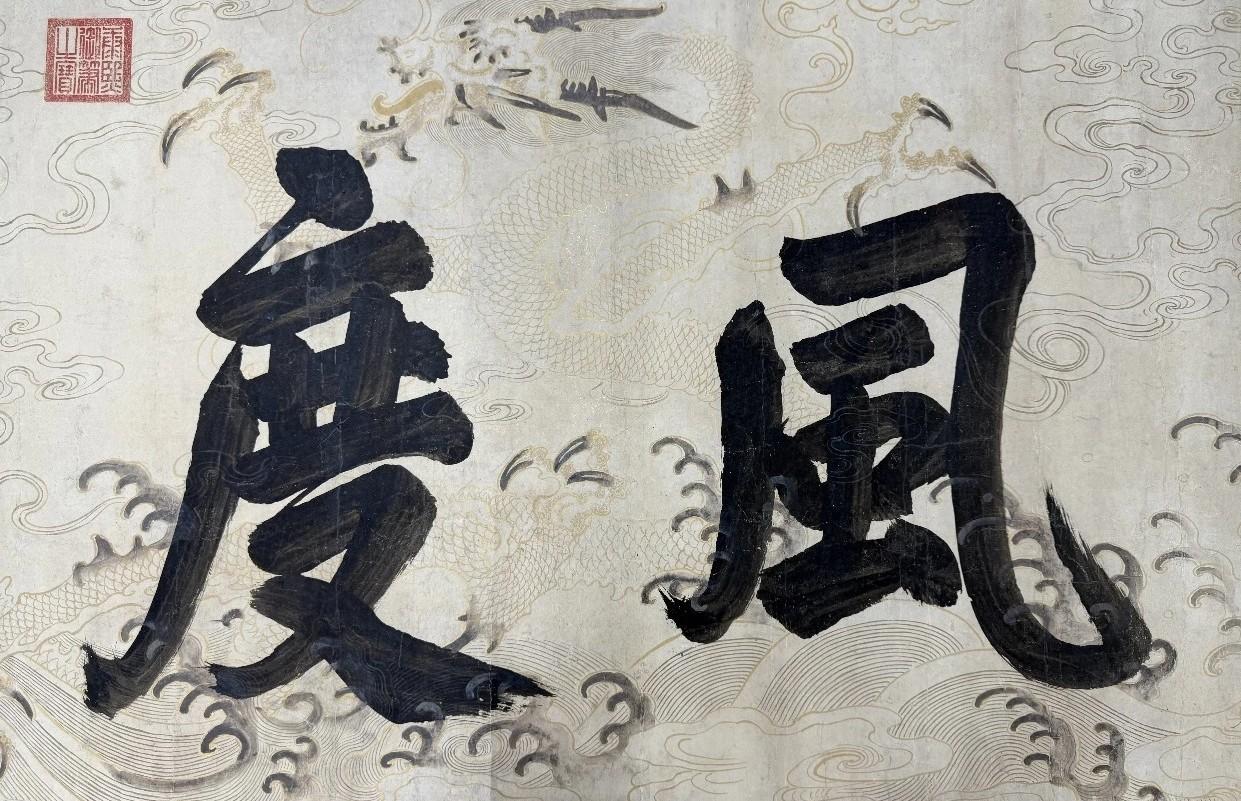 風度
康熙御筆之寶